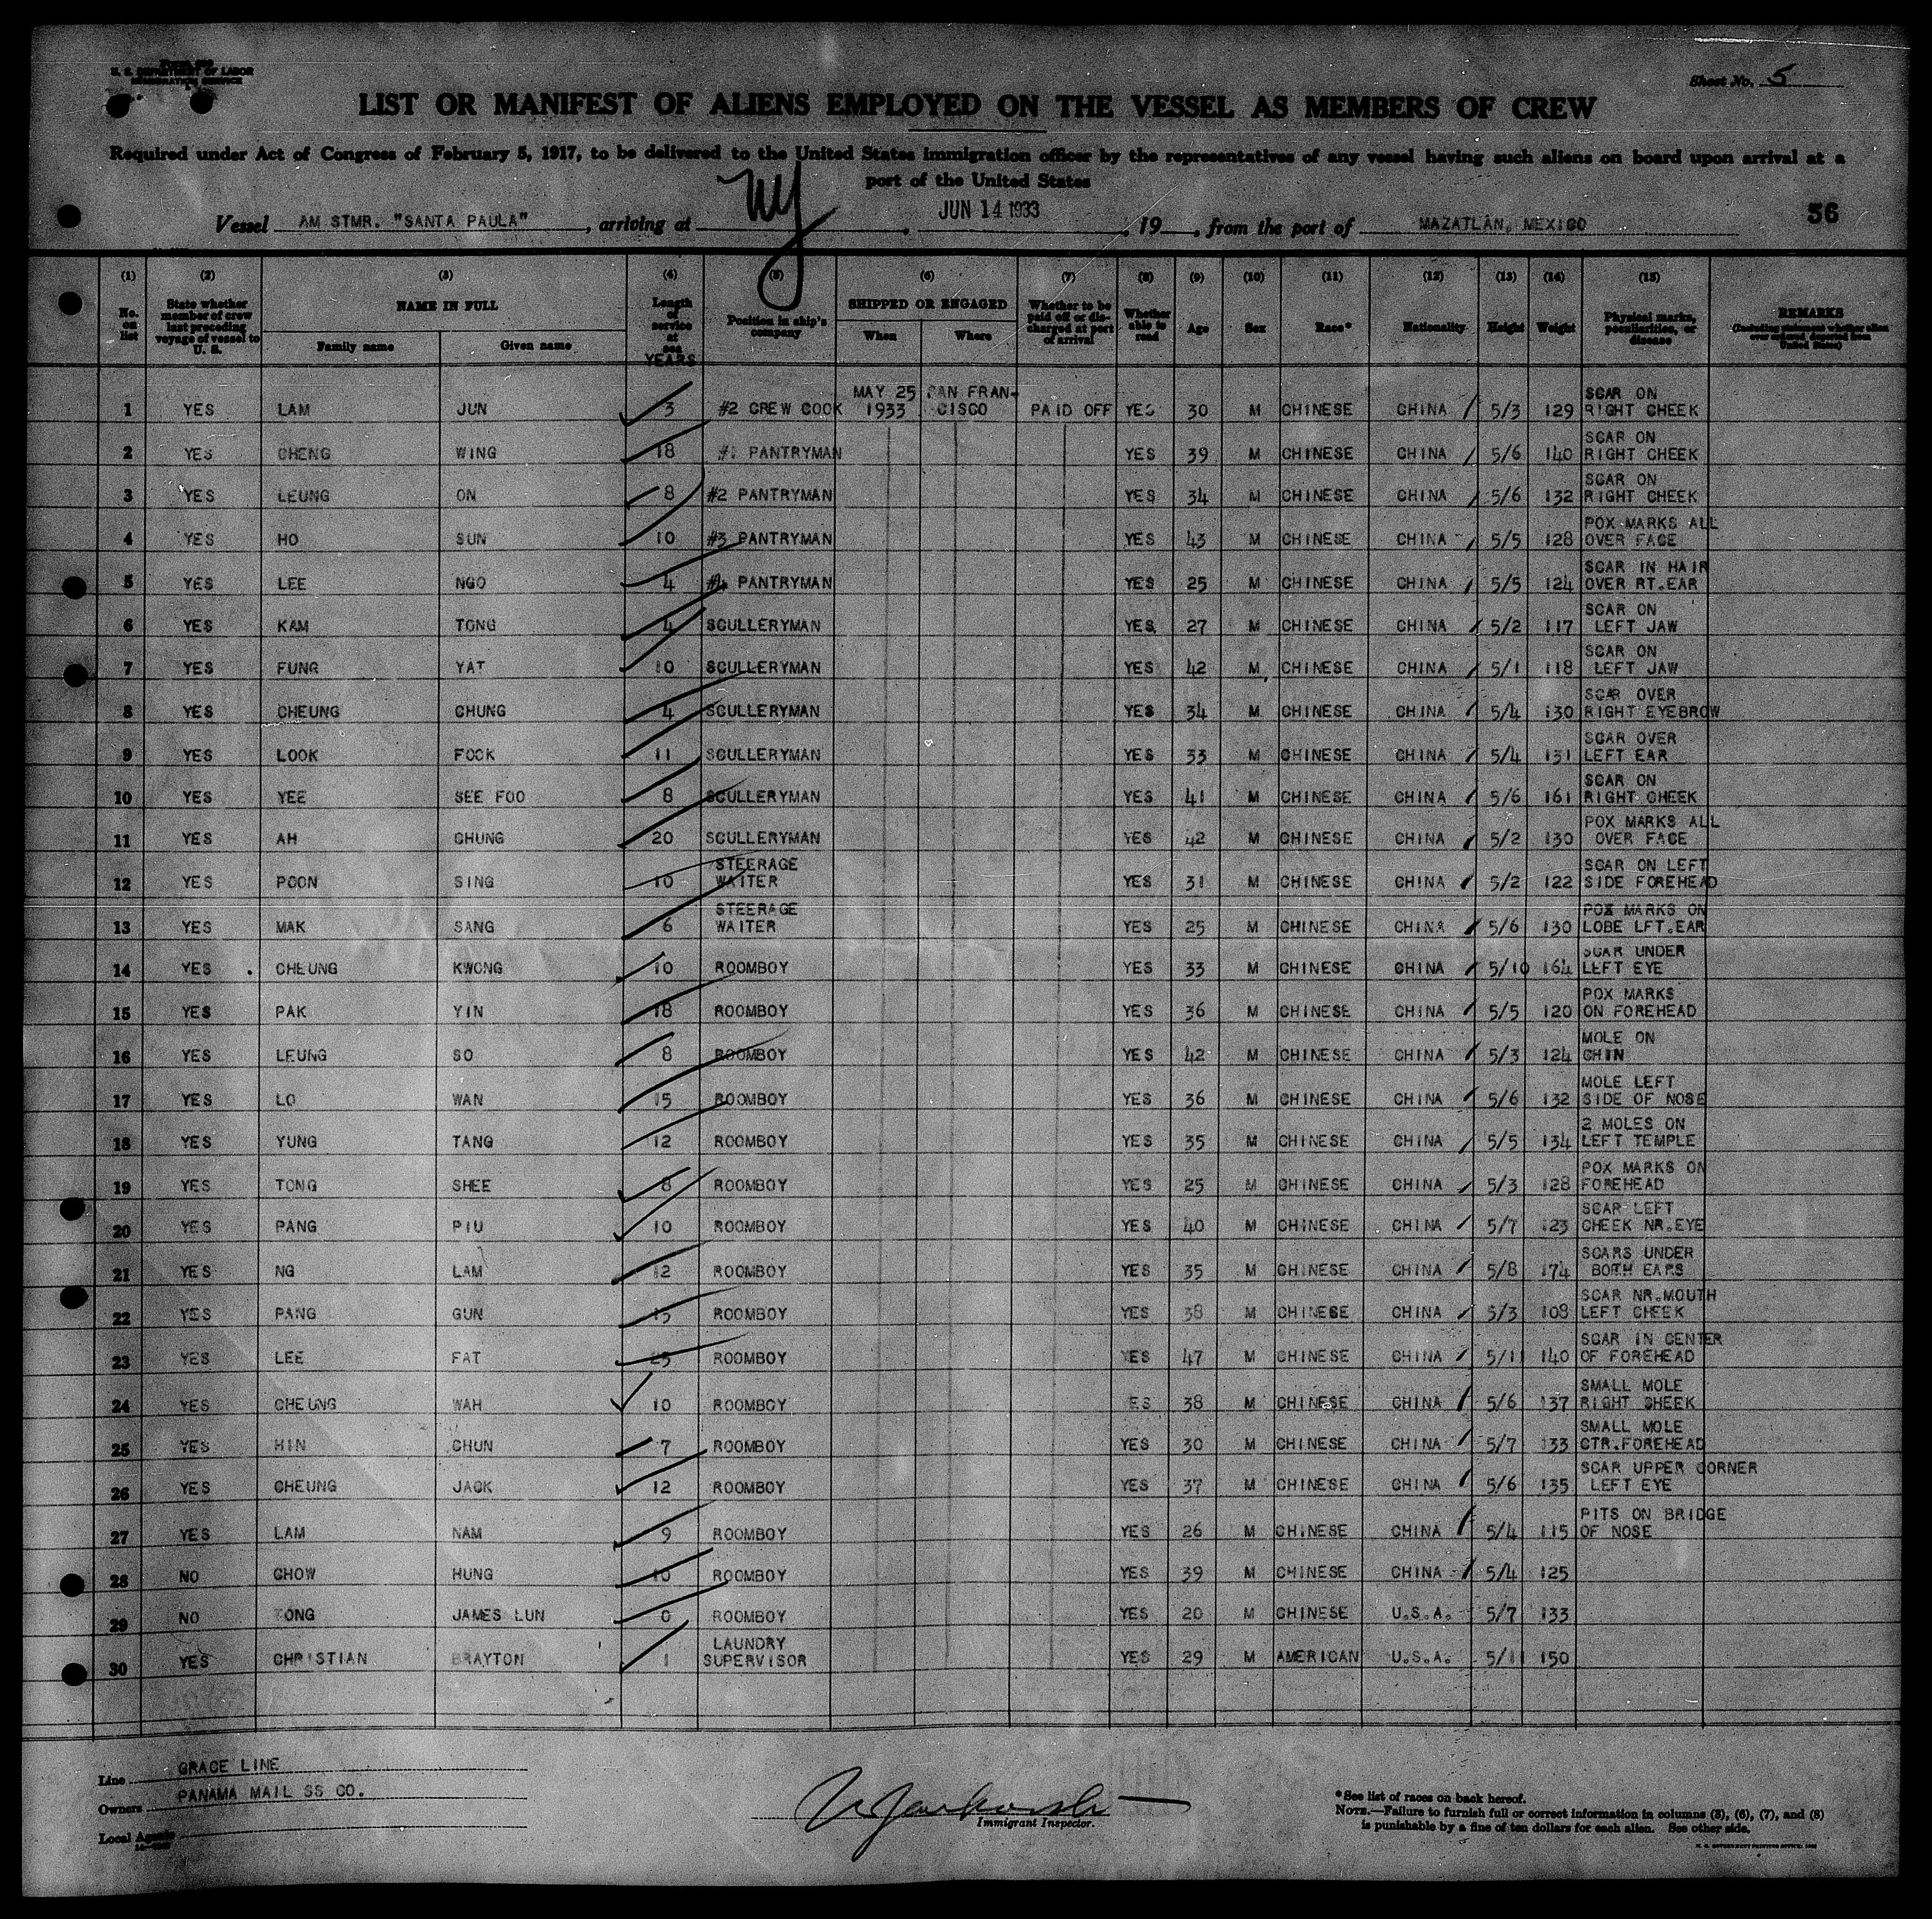 U. S. DEPARTMENT OF LABOR
IMMIGRATION SERVICE
Sheet No. 5
LIST OR MANIFEST OF ALIENS EMPLOYED ON THE VESSEL AS MEMBERS OF CREW
Required under Act of Congress of February 5, 1917, to be delivered to the United States immigration officer by the representatives of any vessel having such aliens on board upon arrival at a
port of the United States
Vessel AM STMR. "SANTA PAULA", arriving at NY, JUN 14 1933, 19 , from the port of MAZATLAN, MEXICO 56
(1) (2) (3) (4) (5) (6) (7) (8) (9) (10) (11) (12) (13) (14) (15)
No. on list State whether member of crew last preceding voyage of vessel to U. S. NAME IN FULL Family name Given name Length of service at sea YEARS Position in ship's company SHIPPED OR ENGAGED When Where Whether to be paid off or discharged at port of arrival Whether able to read Age Sex Race* Nationality Height Weight Physical marks, peculiarities, or disease REMARKS (Including statement whether alien ever ordered deported from United States)
1 YES LAM JUN 3 #2 CREW COOK MAY 25 1933 SAN FRANCISCO PAID OFF YES 30 M CHINESE CHINA 5/3 129 SCAR ON RIGHT CHEEK
2 YES CHENG WING 18 #1 PANTRYMAN YES 39 M CHINESE CHINA 5/6 140 SCAR ON RIGHT CHEEK
3 YES LEUNG ON 8 #2 PANTRYMAN YES 34 M CHINESE CHINA 5/6 132 SCAR ON RIGHT CHEEK
4 YES HO SUN 10 #3 PANTRYMAN YES 43 M CHINESE CHINA 5/5 128 POX MARKS ALL OVER FACE
5 YES LEE NGO 4 #4 PANTRYMAN YES 25 M CHINESE CHINA 5/5 124 SCAR IN HAIR OVER RT.EAR
6 YES KAM TONG 4 SCULLERYMAN YES 27 M CHINESE CHINA 5/2 117 SCAR ON LEFT JAW
7 YES FUNG YAT 10 SCULLERYMAN YES 42 M CHINESE CHINA 5/1 118 SCAR ON LEFT JAW
8 YES CHEUNG CHUNG 4 SCULLERYMAN YES 34 M CHINESE CHINA 5/4 130 SCAR OVER RIGHT EYEBROW
9 YES LOOK FOOK 11 SCULLERYMAN YES 33 M CHINESE CHINA 5/4 131 SCAR OVER LEFT EAR
10 YES YEE SEE FOO 8 SCULLERYMAN YES 41 M CHINESE CHINA 5/6 161 SCAR ON RIGHT CHEEK
11 YES AH CHUNG 20 SCULLERYMAN YES 42 M CHINESE CHINA 5/2 130 POX MARKS ALL OVER FACE
12 YES POON SING 10 STEERAGE WAITER YES 31 M CHINESE CHINA 5/2 122 SCAR ON LEFT SIDE FOREHEAD
13 YES MAK SANG 6 STEERAGE WAITER YES 25 M CHINESE CHINA 5/6 130 POX MARKS ON LOBE LFT.EAR
14 YES CHEUNG KWONG 10 ROOMBOY YES 33 M CHINESE CHINA 5/10 164 SCAR UNDER LEFT EYE
15 YES PAK YIN 18 ROOMBOY YES 36 M CHINESE CHINA 5/5 120 POX MARKS ON FOREHEAD
16 YES LEUNG SO 8 ROOMBOY YES 42 M CHINESE CHINA 5/3 124 MOLE ON CHIN
17 YES LO WAN 15 ROOMBOY YES 36 M CHINESE CHINA 5/6 132 MOLE LEFT SIDE OF NOSE
18 YES YUNG TANG 12 ROOMBOY YES 35 M CHINESE CHINA 5/5 134 2 MOLES ON LEFT TEMPLE
19 YES TONG SHEE 8 ROOMBOY YES 25 M CHINESE CHINA 5/3 128 POX MARKS ON FOREHEAD
20 YES PANG PIU 10 ROOMBOY YES 40 M CHINESE CHINA 5/7 123 SCAR LEFT CHEEK NR.EYE
21 YES NG LAM 12 ROOMBOY YES 35 M CHINESE CHINA 5/8 174 SCARS UNDER BOTH EARS
22 YES PANG GUN 15 ROOMBOY YES 38 M CHINESE CHINA 5/3 108 SCAR NR.MOUTH LEFT CHEEK
23 YES LEE FAT 25 ROOMBOY YES 47 M CHINESE CHINA 5/11 140 SCAR IN CENTER OF FOREHEAD
24 YES CHEUNG WAH 10 ROOMBOY ES 38 M CHINESE CHINA 5/6 137 SMALL MOLE RIGHT CHEEK
25 YES HIN CHUN 7 ROOMBOY YES 30 M CHINESE CHINA 5/7 133 SMALL MOLE CTR.FOREHEAD
26 YES CHEUNG JACK 12 ROOMBOY YES 37 M CHINESE CHINA 5/6 135 SCAR UPPER CORNER LEFT EYE
27 YES LAM NAM 9 ROOMBOY YES 26 M CHINESE CHINA 5/4 115 PITS ON BRIDGE OF NOSE
28 NO CHOW HUNG 10 ROOMBOY YES 39 M CHINESE CHINA 5/4 125
29 NO TONG JAMES LUN 0 ROOMBOY YES 20 M CHINESE U.S.A. 5/7 133
30 YES CHRISTIAN BRAYTON 1 LAUNDRY SUPERVISOR YES 29 M AMERICAN U.S.A. 5/11 150
Line GRACE LINE
Owners PANAMA MAIL SS CO.
Local Agents
Immigrant Inspector.
*See list of races on back hereof.
NOTE.—Failure to furnish full or correct information in columns (3), (6), (7), and (8)
is punishable by a fine of ten dollars for each alien. See other side.